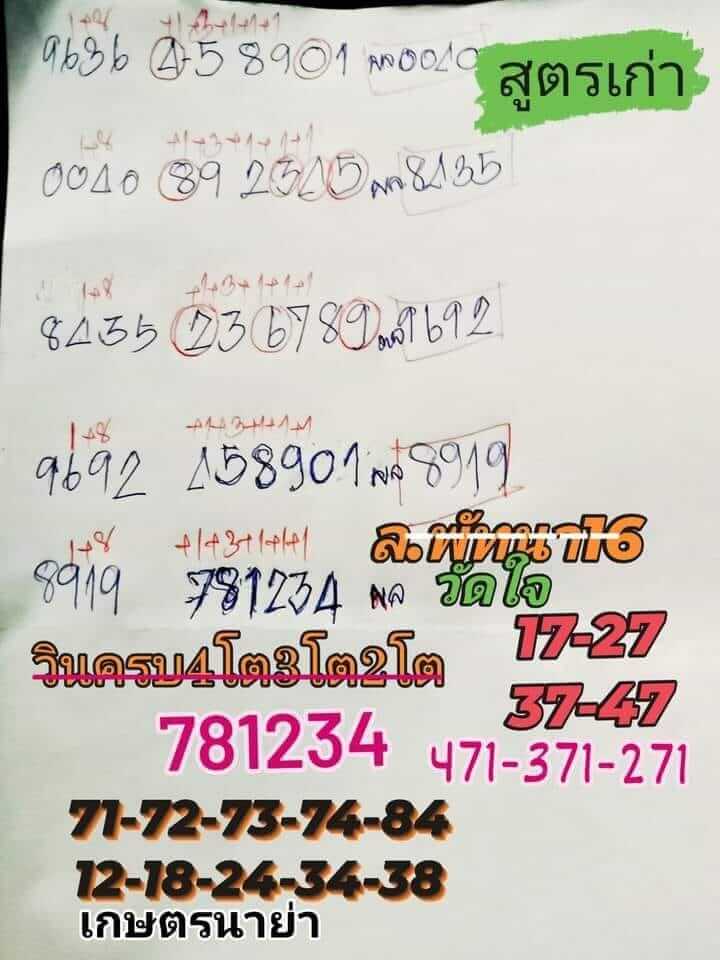 1+8 +1+3+1+1+1
9636 458901 ผล 0040
สูตรเก่า
1+8 +1+3+1+1+1
0040 892345 ผล 8435
1+8 +1+3+1+1+1
8435 236789 ผล 9692
1+8 +1+3+1+1+1
9692 458901 ผล 8919
1+8 +1+3+1+1+1
8919 781234 ผล
ล.พัทนา16
วัดใจ
17-27
วินครบ4โต3โต2โต
37-47
781234
471-371-271
71-72-73-74-84
12-18-24-34-38
เกษตรนาย่า